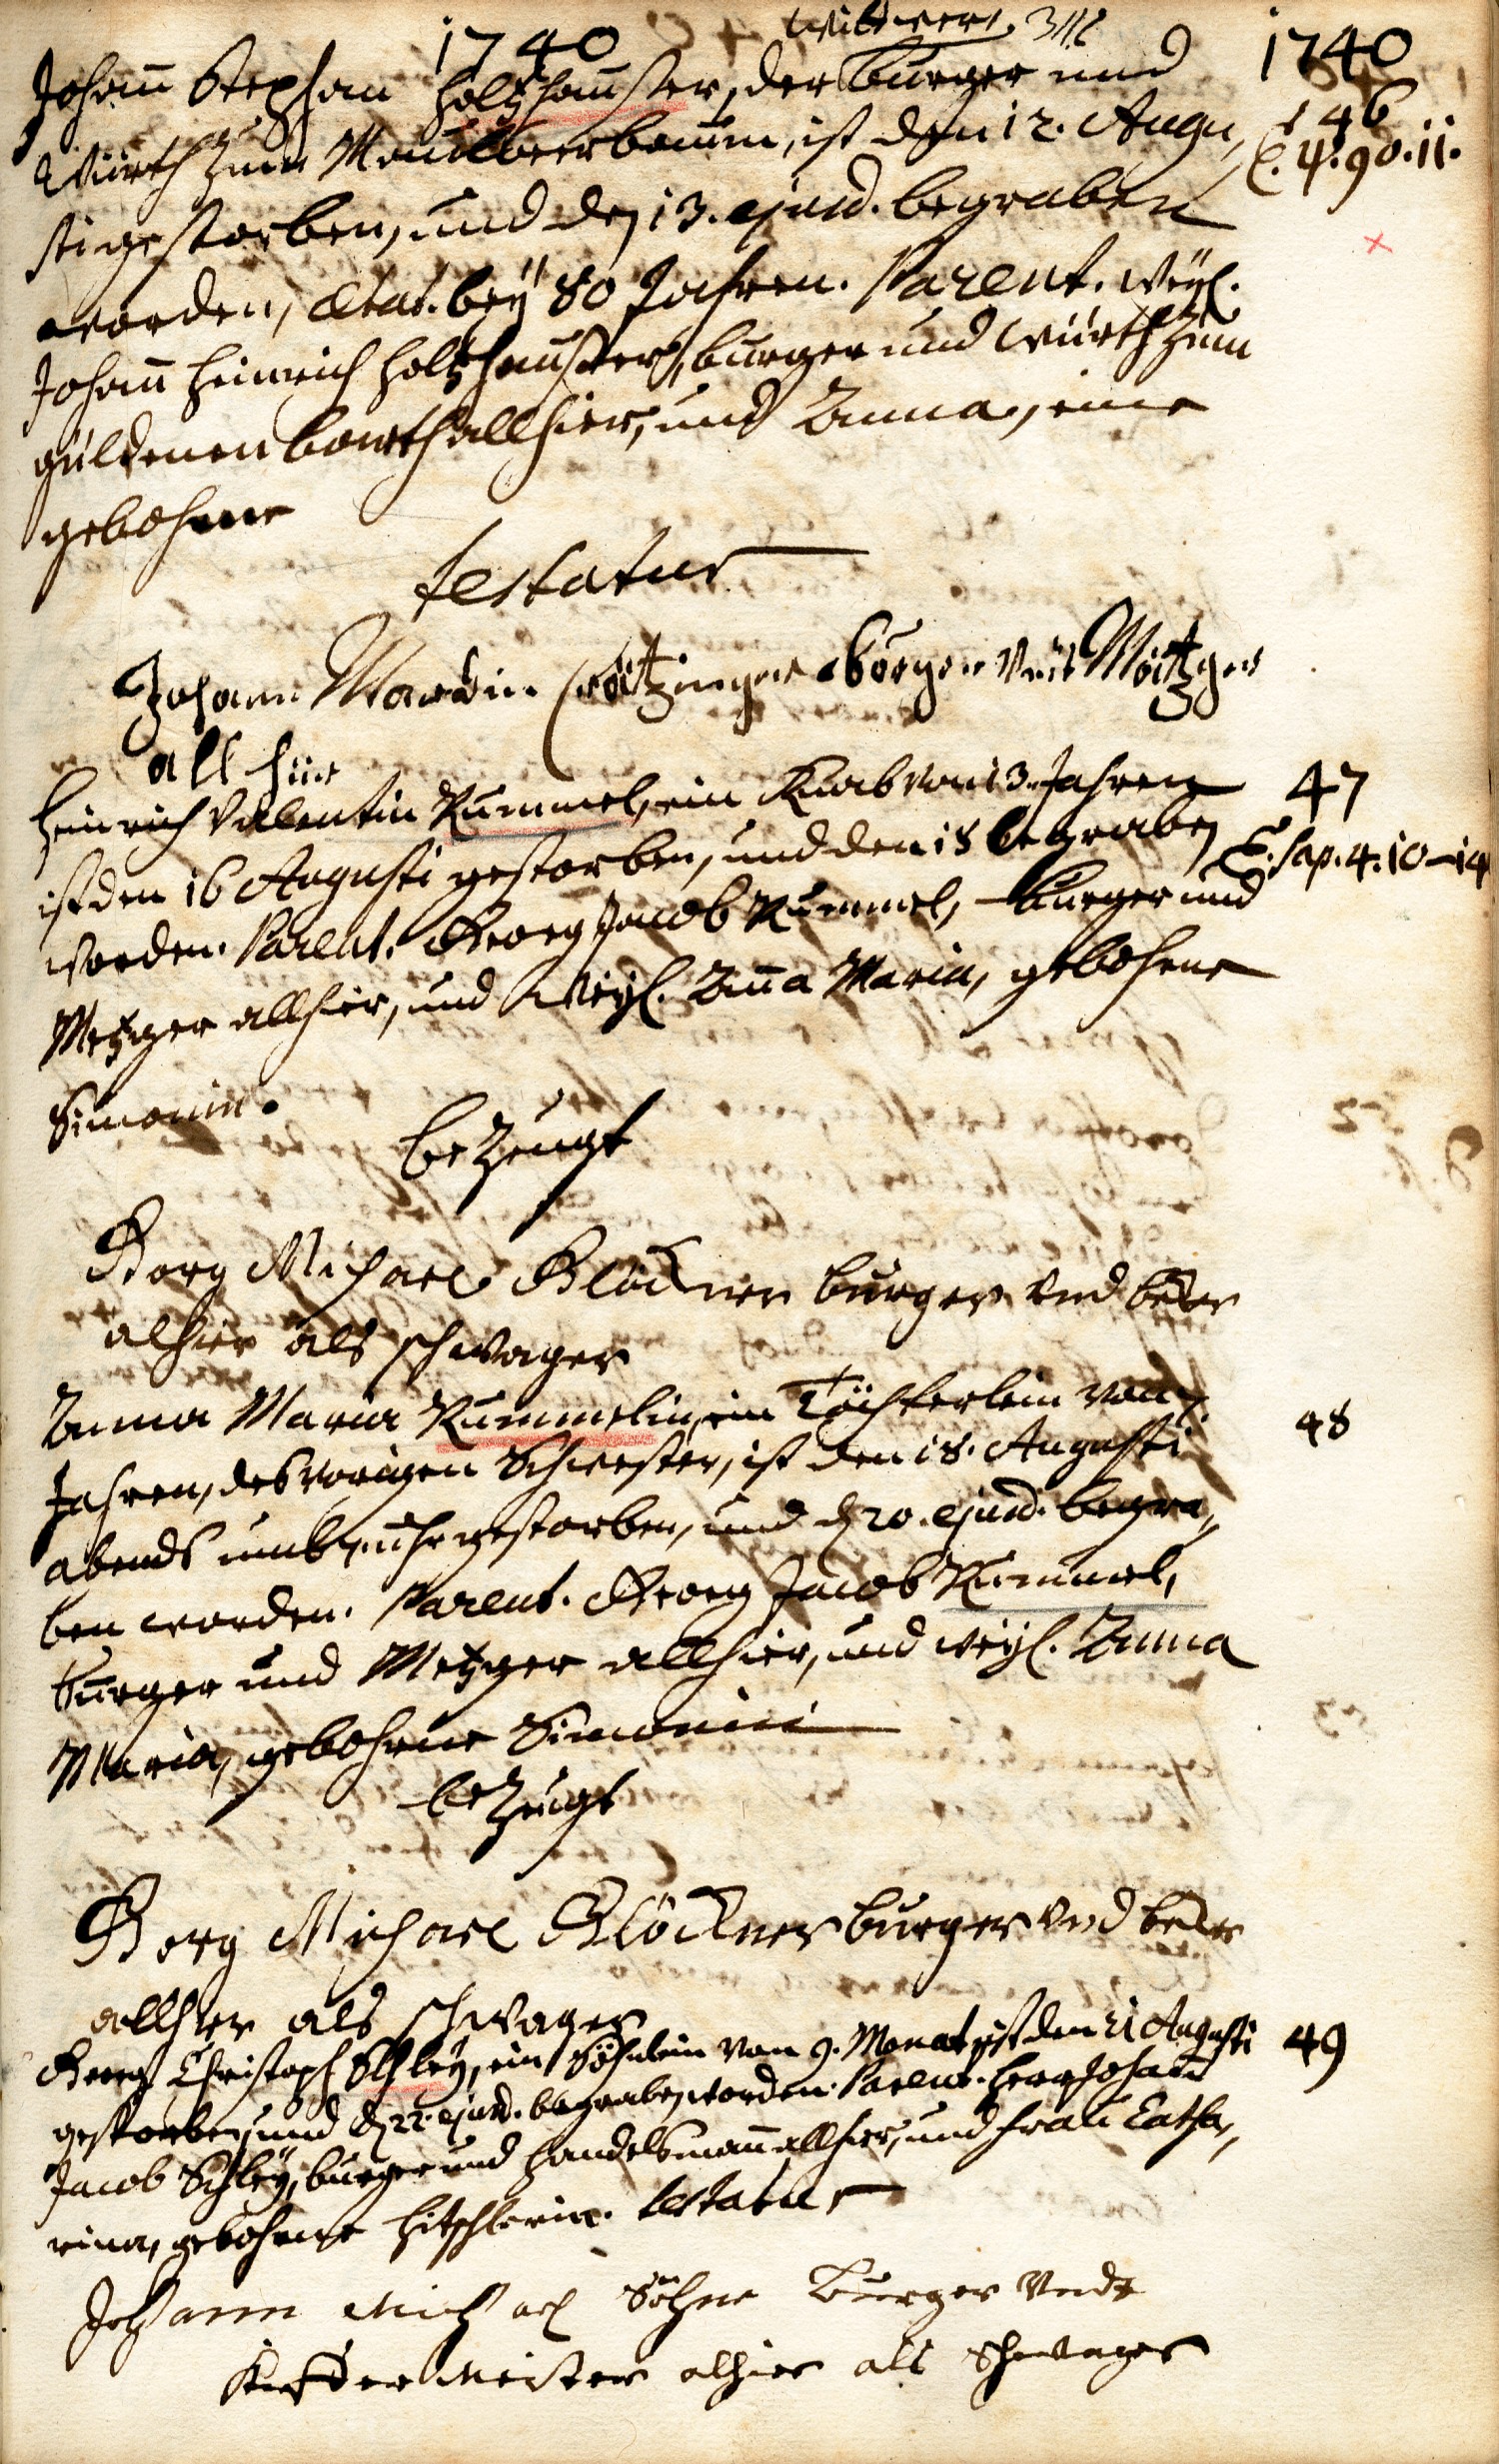 1740
Wittwer.
1740
Johann Stephan Holtzhaußer, der Burger und
46
Würth zum Maulbeerbaum, ist den 12. Augu,
ψ. 90. 11.
sti gestorben, und den 13. ejusd. begraben
worden, ætat. bey 80 Jahren. Parent. weyl.
Johann Heinrich Holtzhaußer, burger und Würth zum
güldenen Barth allhier, und Anna, eine
gebohrne
testatur
Johann Martin Crötzinger burger und Mötzger
all hier
Heinrich Valentin Rummel, ein Knab von 13. Jahren
47
ist den 16 Augusti gestorben, und den 18 begraben
Sap. 4. 10-14
worden. Parent. Georg Jacob Rummel, Burger und
Metzger allhier, und weyl. Anna Maria, gebohrne
Simonin.
bezeugt
Gorg Michael Glöckner burger und beker
alhier als schwager
Anna Maria Rummelin, ein Töchterlein von 7
48
Jahren, des vorigen Schwester, ist den 18. Augusti
abends umb uhr gestorben, und d. 20. ejusd. begra,
ben worden. Parent. Georg Jacob Rummel,
burger und Metzger allhier, und weyl. Anna
Maria, gebohrne Simonin
bezeugt
Gorg Michael Glöckner burger und beker
allhier als schwager
Georg Christoph Schley, ein Söhnlein von 9. Monat, ist den 21 Augusti
49
gestorben, und d. 22. ejusd. begraben worden. Parent. Herr Johann
Jacob Schley, burger und Handelsmann allhier, und Frau Catha,
rina, gebohrne Hitschlerin. testatur
Johann Michael Söhne Burger Undt
Kieffer Meister alhier als Schwager